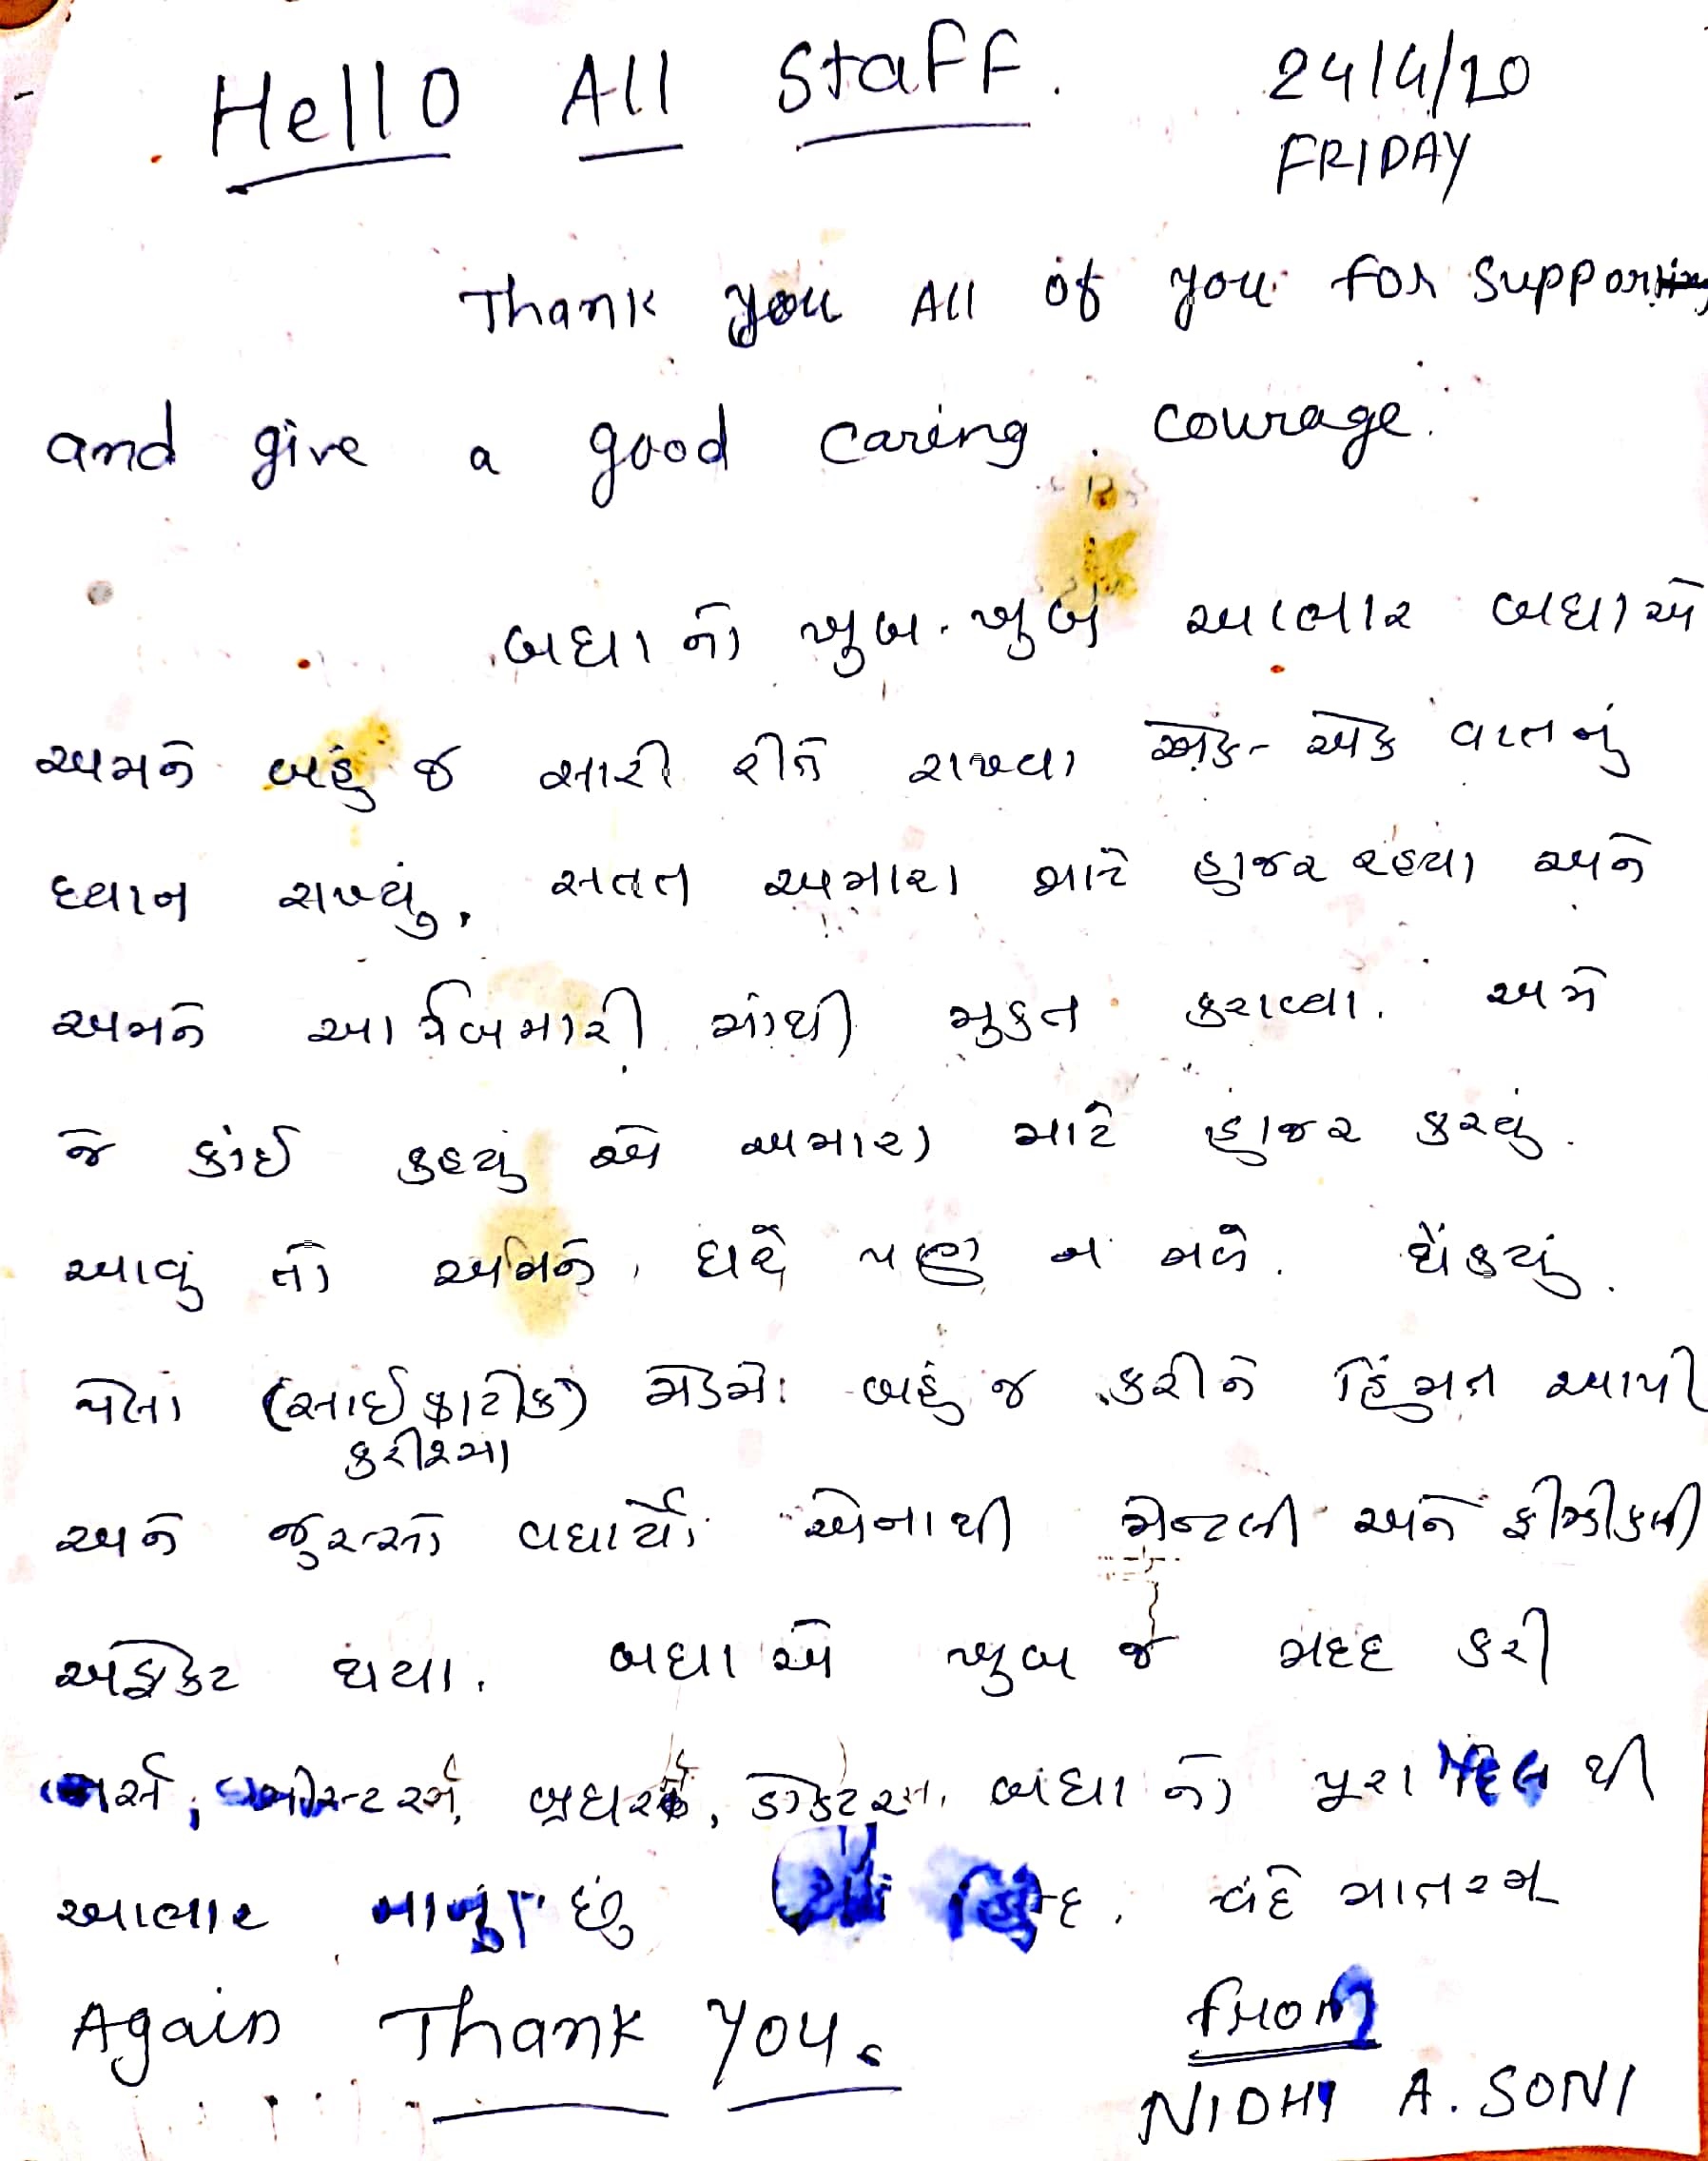 Hello All Staff.
24/4/20
FRIDAY
Thank you All of you for Supporting
and give a good caring. courage.
બધાનો ખુબ. ખુબ આભાર બધાએ
અમને બહું જ સારી રીતે રાખ્યા એક- એક વાતનું
ધ્યાન રાખ્યું, સતત અમારા માટે હાજર રહયા અને
અમને આ બિમારી માંથી મુકત કરાવ્યા. અમે
જે કાંઈ કહયું એ અમારા માટે હાજર કરયું.
આવું તો અમને ઘરે પણ ન મળે. થેંકયું.
પેલા (સાઈકાટીક) મેડમે બહું જ કરીને હિંમત આપી
કરીશ્મા
અને જુસ્સો વધાર્યો એનાથી મેન્ટલી અને ફીઝીકલી
થયા. બધાએ ખુબ જ મદદ કરી
નર્સ, બ્રધર્સ, ડોકટરસ, બધાનો પુરા દિલ થી
આભાર માનું છું હિન્દ. વંદે માતરમ્
Again Thank you.
from
NIDHI A. SONI